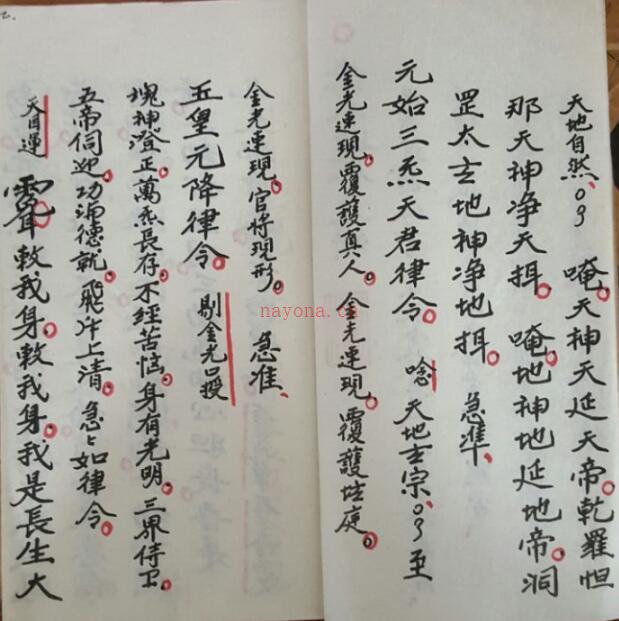 天地自然、唵。天神天延天帝。乾羅怛
那天神净天揖。唵。地神地延地帝。洞
罡太玄地神净地揖。急準、
元始三炁天君律令。唸 天地玄宗。至
金光速現。覆護真人。金光速現。覆護坛庭。
金光速現。官將現形。急准、
玉皇元降律令。剔金光
塊神澄正。萬炁長存。不經苦恼。身有光明。三界侍卫。
五帝伺迎。功满德就。飛升上清。急々如律令。
天目運 敕我身。敕我身。我是長生大
nayona.cn